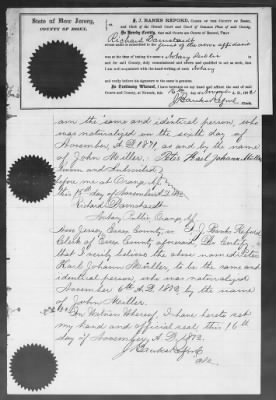 State of New Jersey,
COUNTY OF ESSEX.
I, J. BANKS REFORD, CLERK OF THE COUNTY OF ESSEX,
and Clerk of the Circuit Court and Court of Common Pleas of said County,
Do Hereby Certify, that said Courts are Courts of Record, That
Richard
whose name is subscribed to the jurat of the annexed affidavit
was at the time of a Notary Public
in and for said County, duly commissioned and sworn and qualified to act as such,
am well acquainted with the handwriting of such Notary
and verily believe the signature to be genuine.
In Testimony Whereof, I have hereunto set my hand and affixed the seal of said
Courts and County, at Newark, this
J. Banks Reford Clerk
am the same and identical person, who
was naturalized on the sixth day of
November, A.D. 1871, as and by the name
of John Miller: Peter Karl Johann Miller
Sworn and Subscribed
before me at Orange, N.J.
this day of November A.D. 1872
Richard
Notary Public Orange N.J.
New Jersey, Essex County ss I, J. Banks Reford
Clerk of Essex County aforesaid Do Certify,
that I verily believe the above named Peter
Karl Johann Miller, to be the same and
identical person, who was naturalized
November 6th A.D. 1872, by the name
of John Miller.
In Witness Whereof, I have hereto set
my hand and official seal this 16th
day of November, A.D. 1872.
J. Banks Reford
Clk